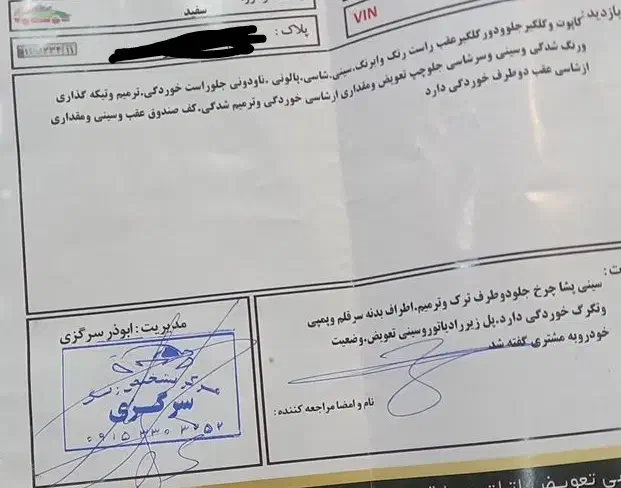 سفید
پلاک :
VIN
بازدید :
کاپوت و گلگیر جلو و دور گلگیر عقب راست رنگ و ابرنگ. سینی. شاسی. پالونی. ناودونی جلو راست خوردگی. ترمیم و تیکه گذاری
و رنگ شدگی و سینی و سر شاسی جلو چپ تعویض و مقداری از شاسی خوردگی و ترمیم شدگی. کف صندوق عقب و سینی و مقداری
از شاسی عقب دو طرف خوردگی دارد
سینی پشا چرخ جلو دو طرف ترک و ترمیم. اطراف بدنه سر قلم و پمپی
و تگرگ خوردگی دارد. پل زیر رادیاتور و سینی تعویض. وضعیت
خودرو به مشتری گفته شد
نام و امضا مراجعه کننده :
مدیریت : ابوذر سرگزی
مرکز تشخیص رنگ
سرگزی
۰۹۱۵۳۳۰۳۲۵۲